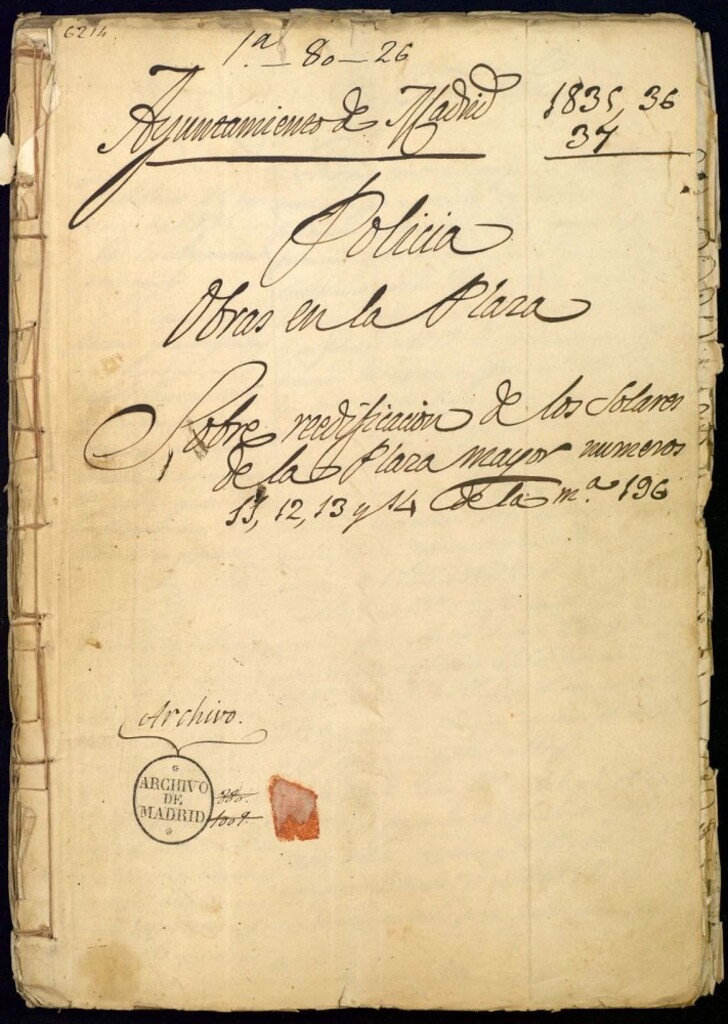 6214
1.ª 80-26
Ayuntamiento de Madrid
1835, 36
37
Policia
Obras en la Plaza
Sobre reedificacion de los Solares
de la Plaza mayor numeros
11, 12, 13 y 14 de la m.ª 196
Archivo.
ARCHIVO
DE
MADRID
1009.